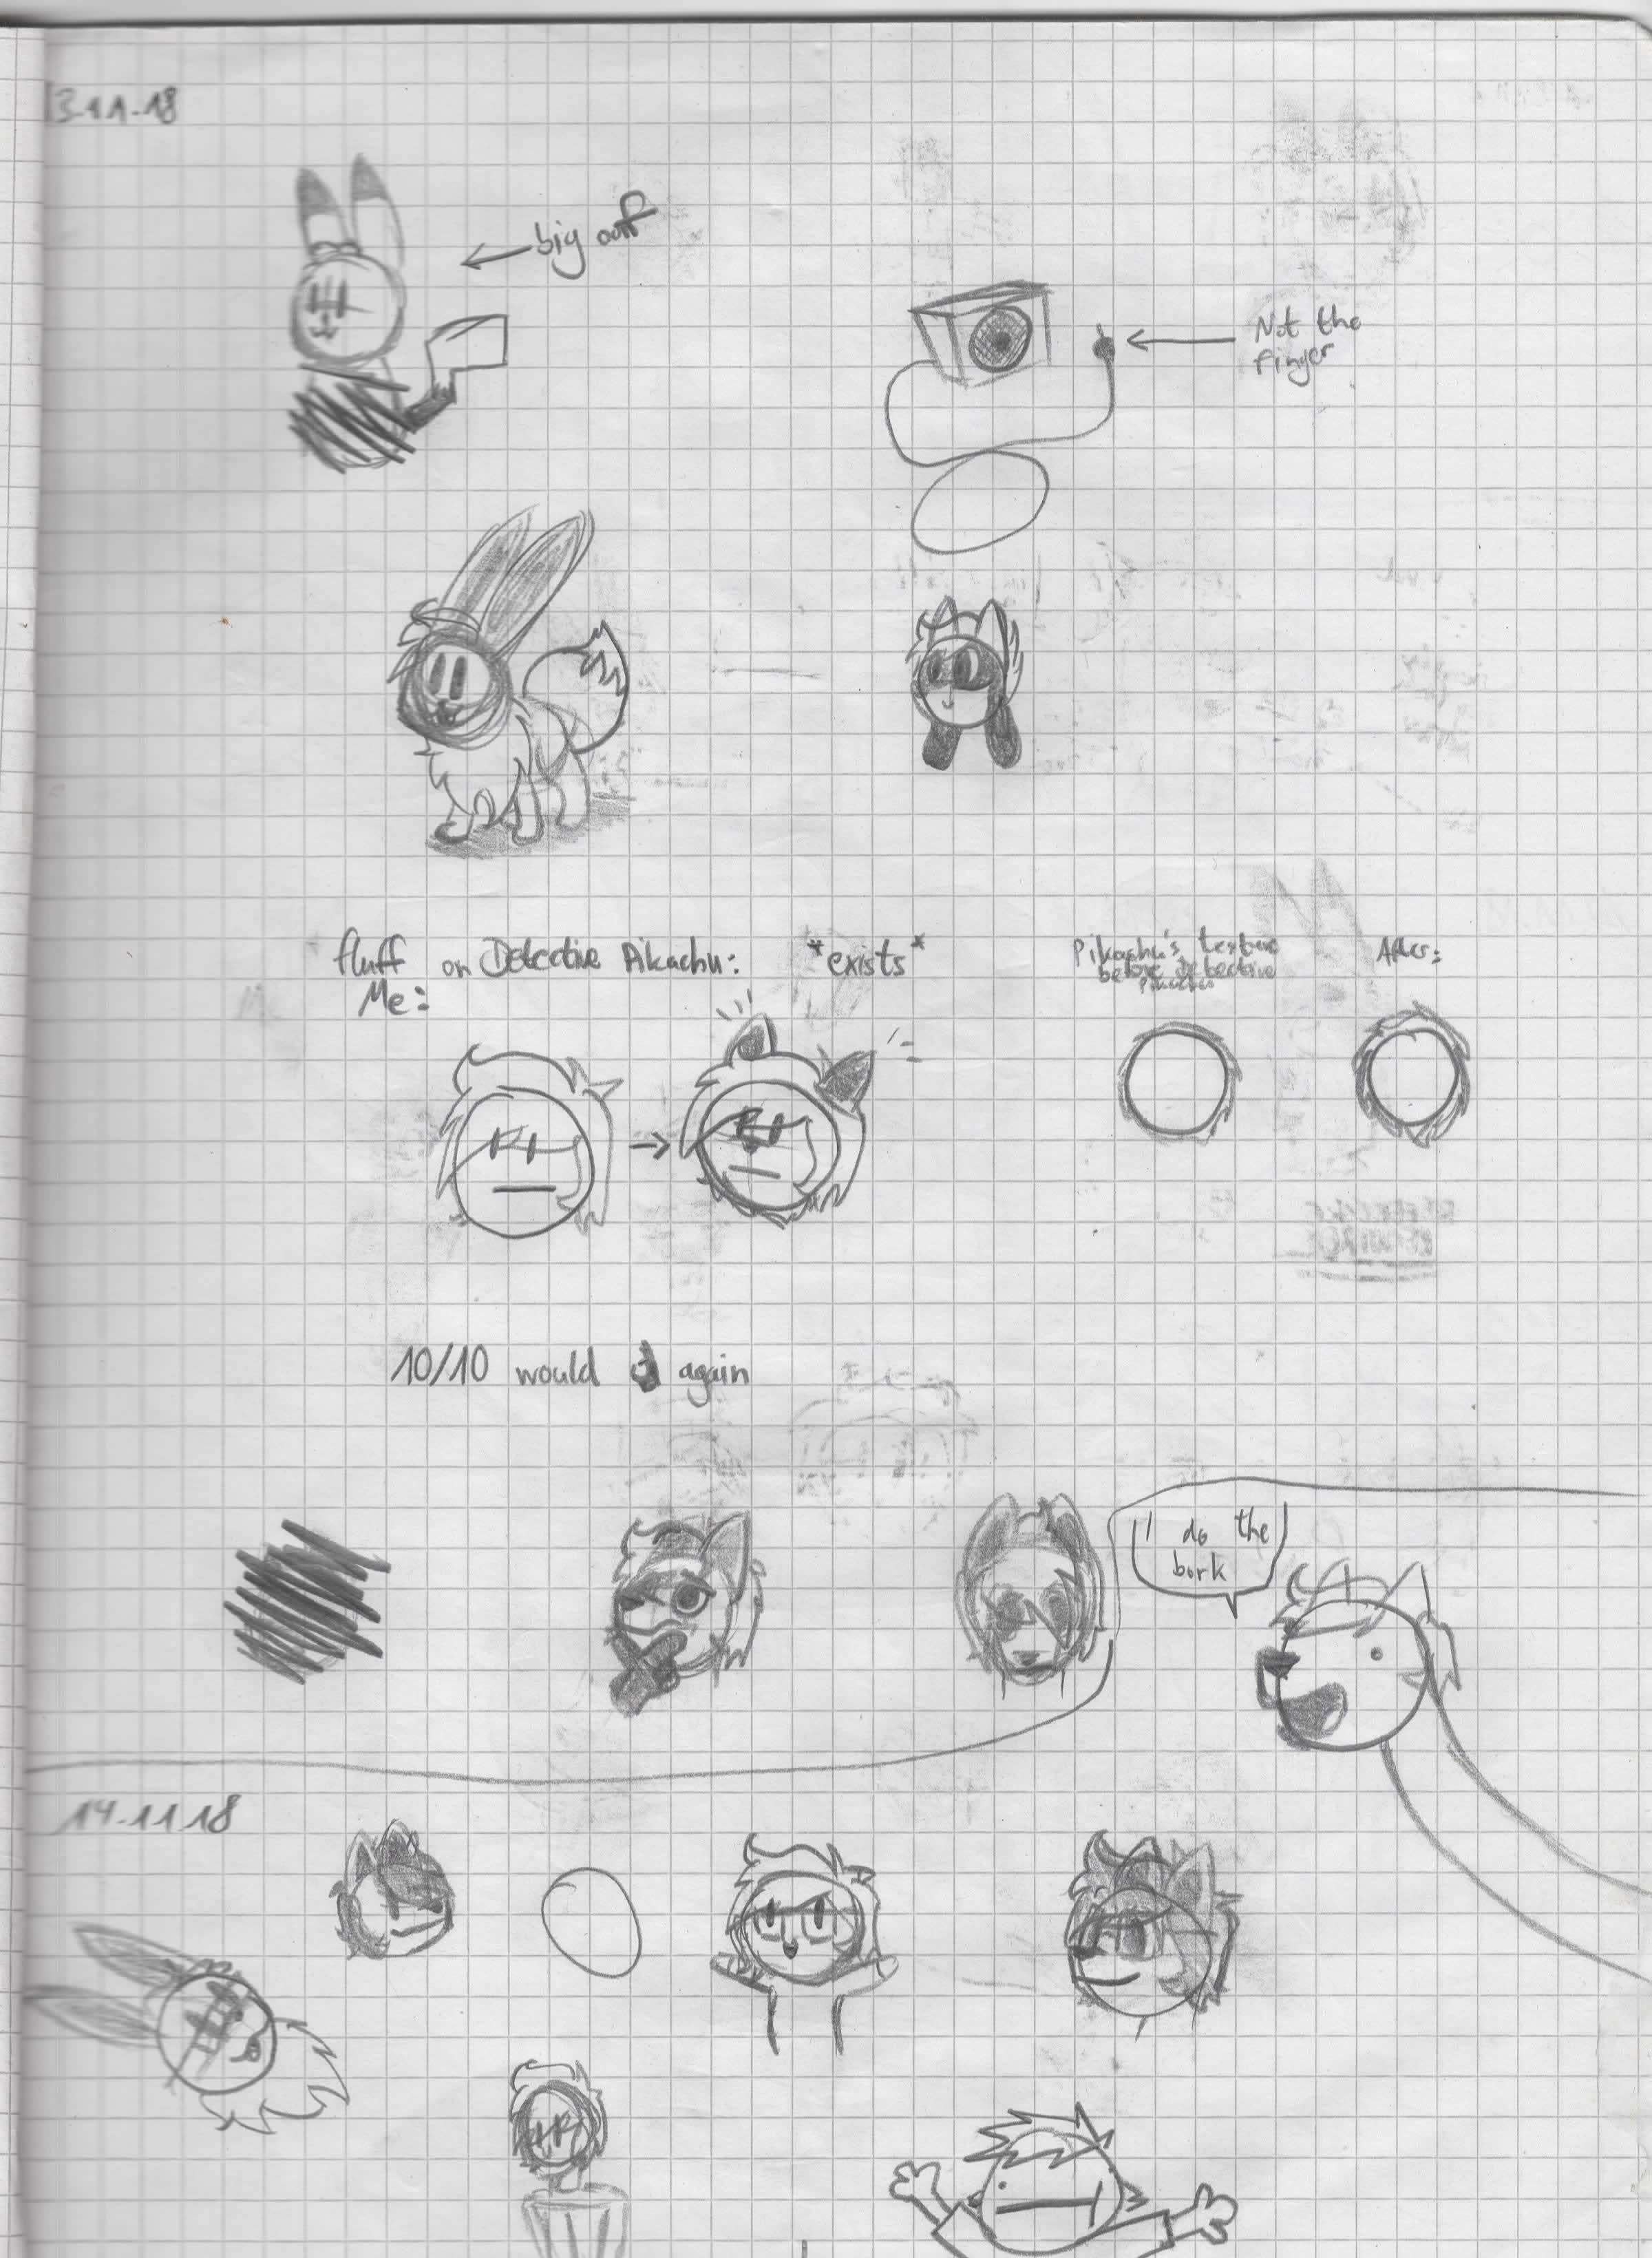 13-11-18
big oof
Not the
finger
fluff on Detective Pikachu: *exists*
Me:
Pikachu's texture
before Detective
Pikachu
After:
10/10 would again
I do the
bork
14-11-18